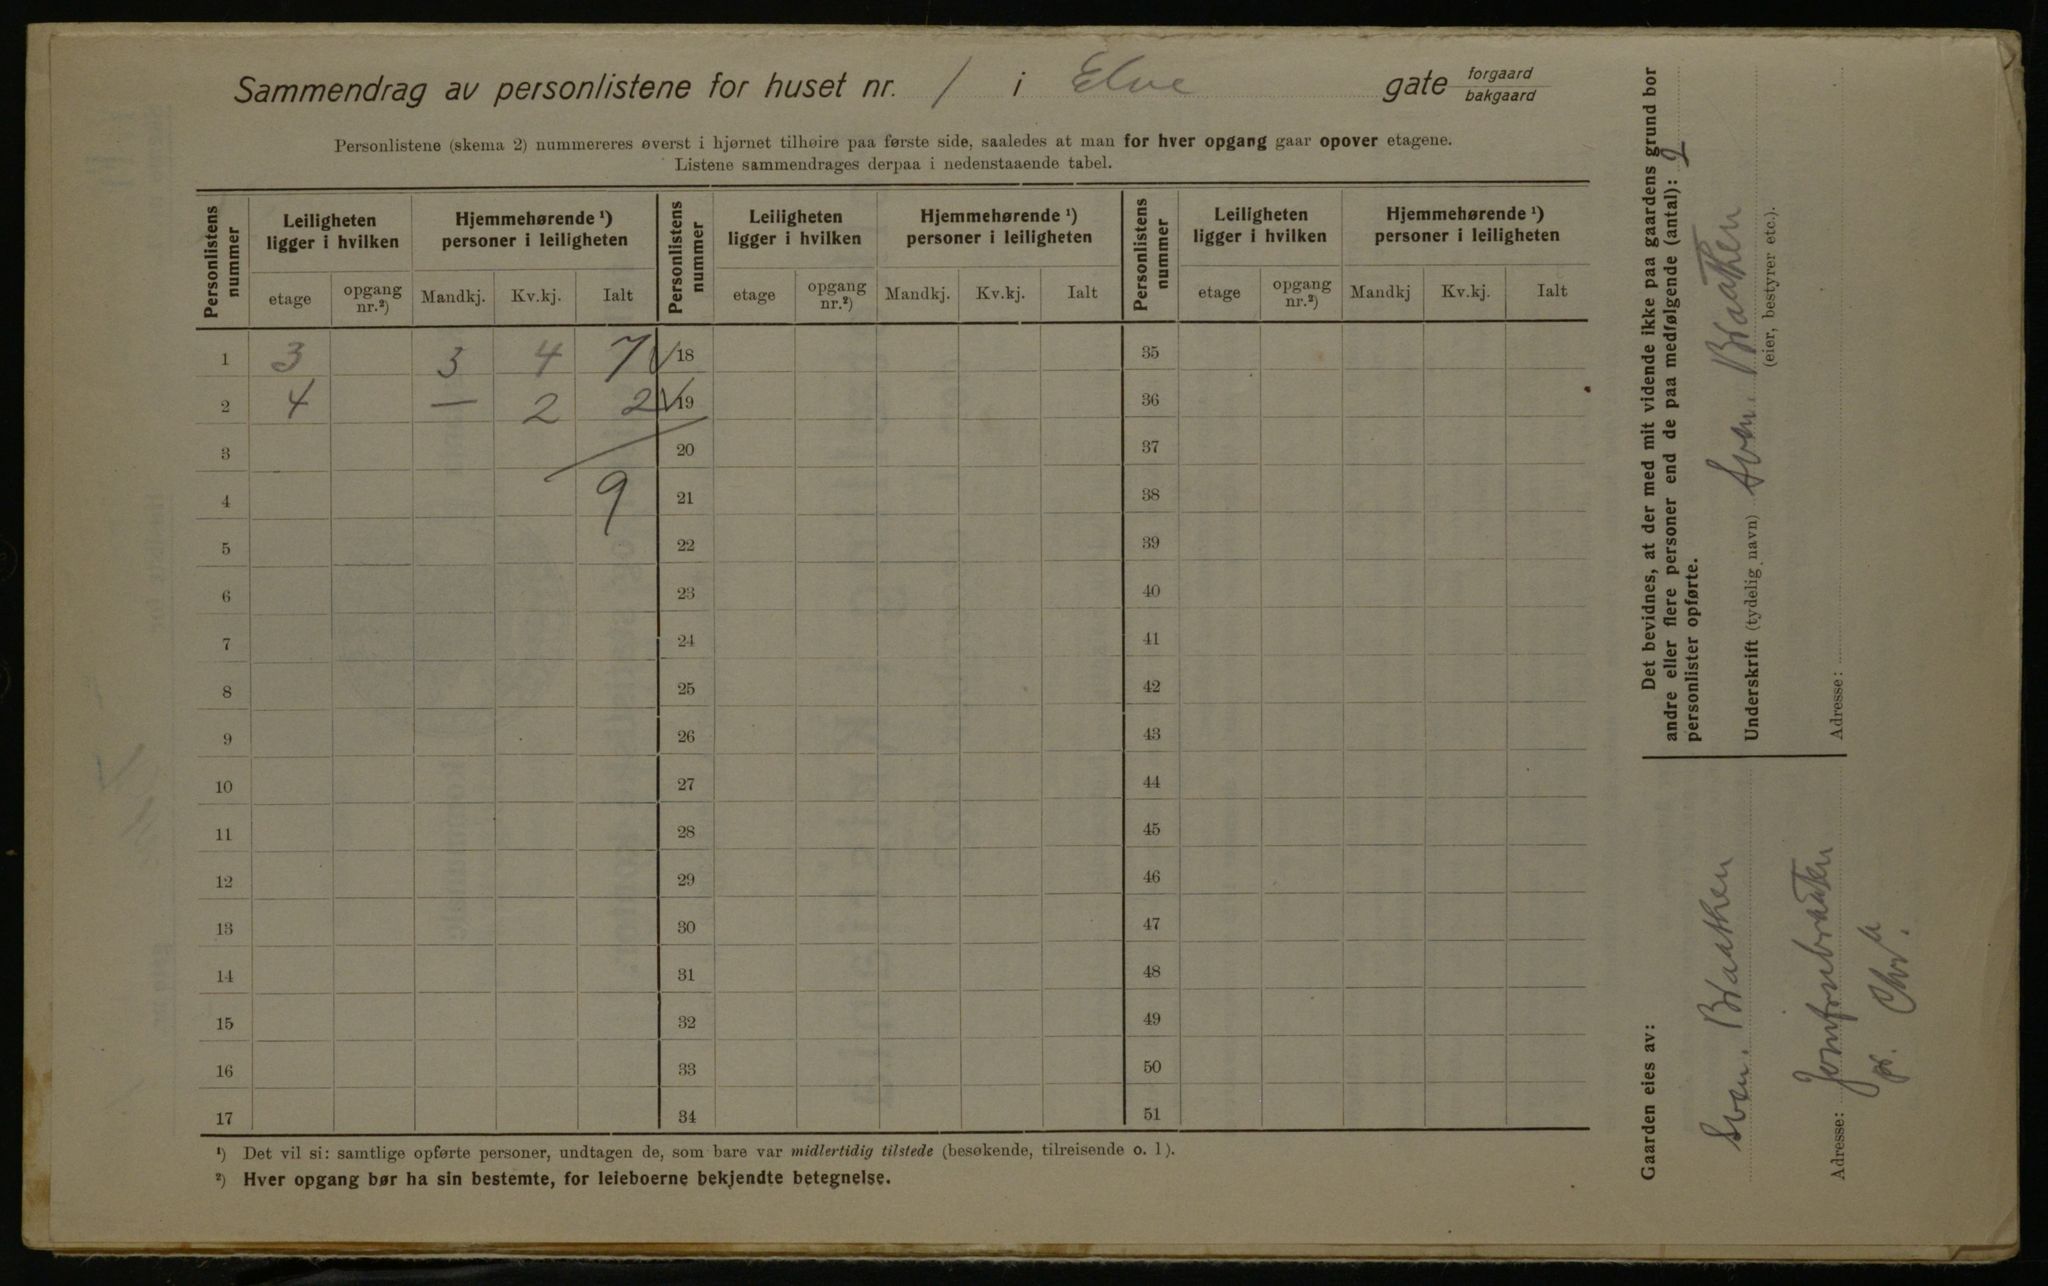 Sammendrag av personlistene for huset nr. 1 i Elve gate forgaard
bakgaard
Personlistene (skema 2) nummereres øverst i hjørnet tilhøire paa første side, saaledes at man for hver opgang gaar opover etagene.
Listene sammendrages derpaa i nedenstaaende tabel.
Personlistens nummer | Leiligheten ligger i hvilken | Hjemmehørende ¹) personer i leiligheten | Personlistens nummer | Leiligheten ligger i hvilken | Hjemmehørende ¹) personer i leiligheten | Personlistens nummer | Leiligheten ligger i hvilken | Hjemmehørende ¹) personer i leiligheten
etage | opgang nr.²) | Mandkj. | Kv.kj. | Ialt | etage | opgang nr.²) | Mandkj. | Kv.kj. | Ialt | etage | opgang nr.²) | Mandkj | Kv.kj. | Ialt
1 3 3 4 7 √ 18 35
2 4 — 2 2 √ 19 36
3 20 37
4 9 21 38
5 22 39
6 23 40
7 24 41
8 25 42
9 26 43
10 27 44
11 28 45
12 29 46
13 30 47
14 31 48
15 32 49
16 33 50
17 34 51
¹) Det vil si: samtlige opførte personer, undtagen de, som bare var midlertidig tilstede (besøkende, tilreisende o. l).
²) Hver opgang bør ha sin bestemte, for leieboerne bekjendte betegnelse.
Det bevidnes, at der med mit vidende ikke paa gaardens grund bor
andre eller flere personer end de paa medfølgende (antal): 2
personlister opførte.
Underskrift (tydelig navn) Sven. Braathen
(eier, bestyrer etc.).
Adresse:
Gaarden eies av:
Sven. Braathen
Adresse: Jomfrubraaten
pr. Chr.a.